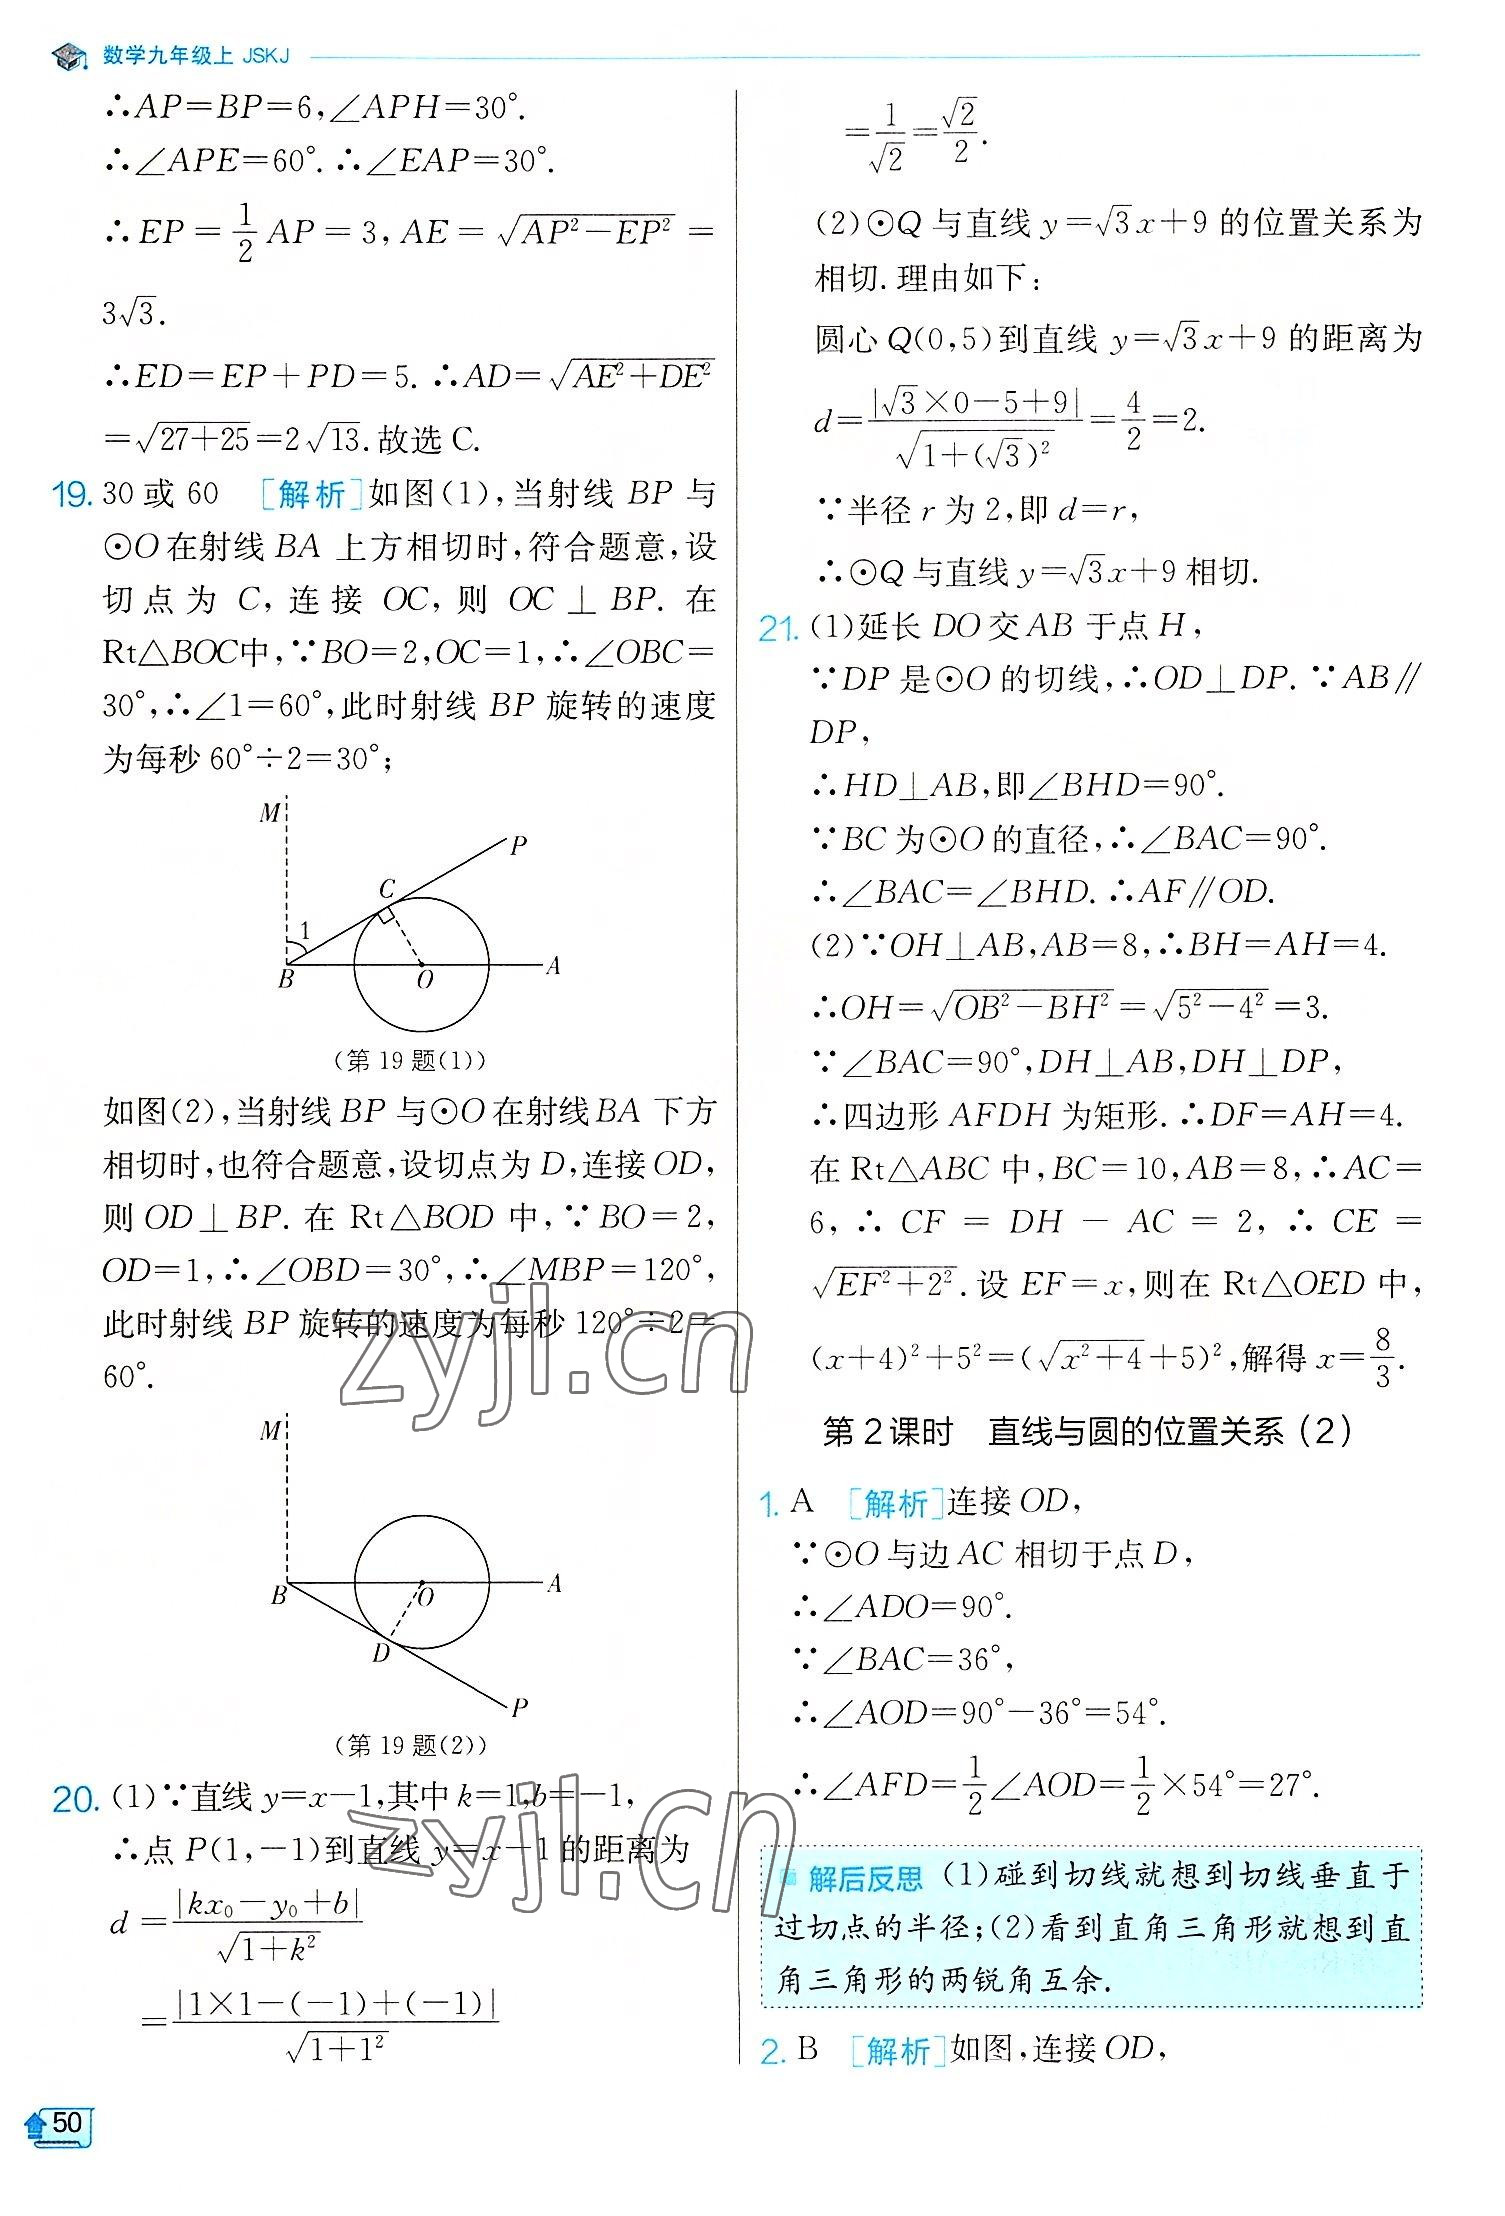 数学九年级上 JSKJ
∴AP=BP=6,∠APH=30°.
∴∠APE=60°.∴∠EAP=30°.
∴EP=1/2 AP=3,AE=√(AP²-EP²)=
3√3.
∴ED=EP+PD=5.∴AD=√(AE²+DE²)
=√(27+25)=2√13.故选C.
19. 30或60 [解析]如图(1),当射线BP与
⊙O在射线BA上方相切时,符合题意,设
切点为C,连接OC,则OC⊥BP.在
Rt△BOC中,∵BO=2,OC=1,∴∠OBC=
30°,∴∠1=60°,此时射线BP旋转的速度
为每秒60°÷2=30°;
M
P
C
1
B
O
A
(第19题(1))
如图(2),当射线BP与⊙O在射线BA下方
相切时,也符合题意,设切点为D,连接OD,
则OD⊥BP.在Rt△BOD中,∵BO=2,
OD=1,∴∠OBD=30°,∴∠MBP=120°,
此时射线BP旋转的速度为每秒120°÷2=
60°.
M
B
O
A
D
P
(第19题(2))
20. (1)∵直线y=x-1,其中k=1,b=-1,
∴点P(1,-1)到直线y=x-1的距离为
d=|kx₀-y₀+b|/√(1+k²)
=|1×1-(-1)+(-1)|/√(1+1²)
50
=1/√2=√2/2.
(2)⊙Q与直线y=√3x+9的位置关系为
相切.理由如下:
圆心Q(0,5)到直线y=√3x+9的距离为
d=|√3×0-5+9|/√(1+(√3)²)=4/2=2.
∵半径r为2,即d=r,
∴⊙Q与直线y=√3x+9相切.
21. (1)延长DO交AB于点H,
∵DP是⊙O的切线,∴OD⊥DP.∵AB∥
DP,
∴HD⊥AB,即∠BHD=90°.
∵BC为⊙O的直径,∴∠BAC=90°.
∴∠BAC=∠BHD.∴AF∥OD.
(2)∵OH⊥AB,AB=8,∴BH=AH=4.
∴OH=√(OB²-BH²)=√(5²-4²)=3.
∵∠BAC=90°,DH⊥AB,DH⊥DP,
∴四边形AFDH为矩形.∴DF=AH=4.
在Rt△ABC中,BC=10,AB=8,∴AC=
6,∴CF=DH-AC=2,∴CE=
√(EF²+2²).设EF=x,则在Rt△OED中,
(x+4)²+5²=(√(x²+4)+5)²,解得x=8/3.
第2课时 直线与圆的位置关系(2)
1. A [解析]连接OD,
∵⊙O与边AC相切于点D,
∴∠ADO=90°.
∵∠BAC=36°,
∴∠AOD=90°-36°=54°.
∴∠AFD=1/2∠AOD=1/2×54°=27°.
解后反思 (1)碰到切线就想到切线垂直于
过切点的半径;(2)看到直角三角形就想到直
角三角形的两锐角互余.
2. B [解析]如图,连接OD,
zyjl.cn
zyjl.cn